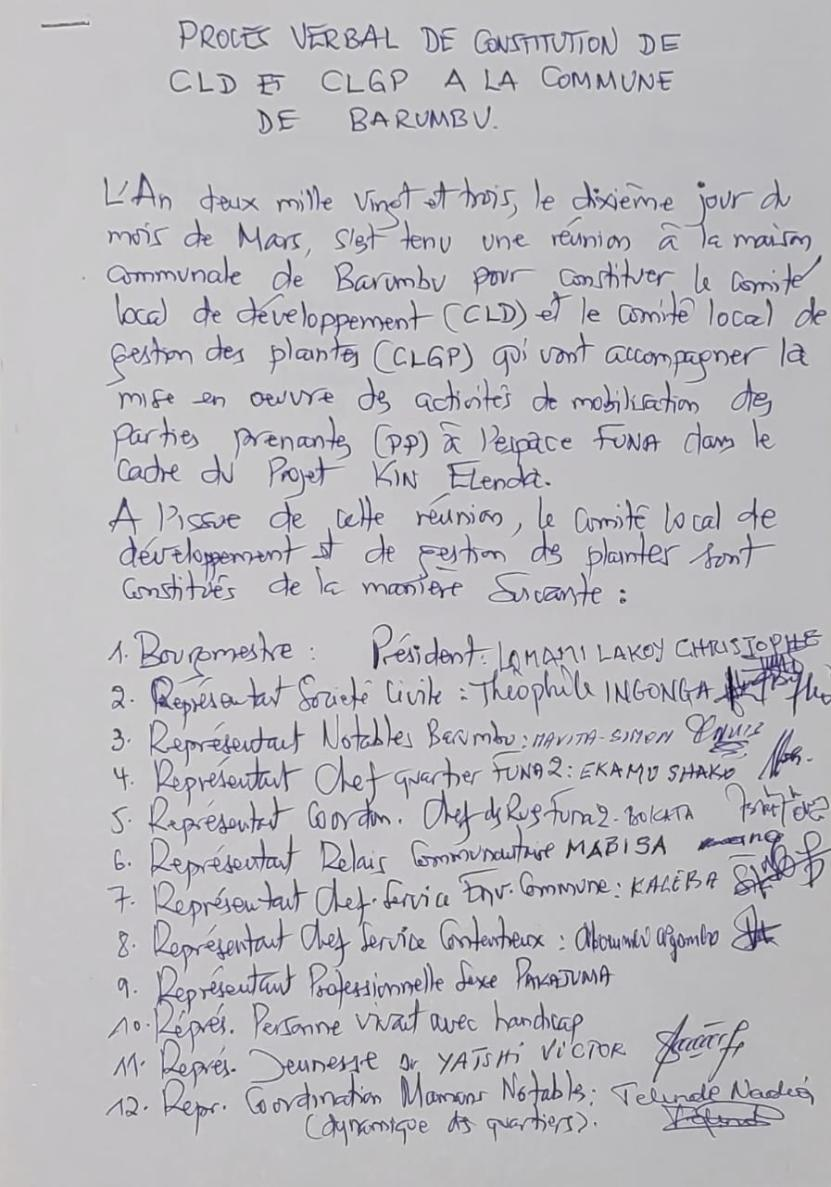 PROCES VERBAL DE CONSTITUTION DE
CLD ET CLGP A LA COMMUNE
DE BARUMBU.
L'An deux mille Vingt et trois, le dixième jour du
mois de Mars, s'est tenu une réunion à la maison
communale de Barumbu pour constituer le comité
local de développement (CLD) et le comité local de
gestion des plaintes (CLGP) qui vont accompagner la
mise en oeuvre des activités de mobilisation des
Parties prenantes (PP) à l'espace FUNA dans le
Cadre du Projet KIN ELENDA.
A l'issue de cette réunion, le comité local de
développement et de gestion des plaintes sont
Constitués de la manière Suivante :
1. Bourgmestre : Président: LOMAMI LAKOY CHRISTOPHE
2. Représentant Société Civile : Théophile INGONGA
3. Représentant Notables Barumbu : MAVITA-SIMON
4. Représentant Chef quartier FUNA 2 : EKAMU SHAKO
5. Représentant Coordon. Chef ds Rue Funa 2 - BOKATA
6. Représentant Relais Communautaire MABISA
7. Représentant Chef Service Env. Commune : KALEBA
8. Représentant Chef Service Contentieux :
9. Représentant Professionnelle Sexe PAKAJUMA
10. Réprés. Personne vivant avec handicap
11. Représ. Jeunesse Dr YATSHI VICTOR
12. Repr. Coordination Mamans Notables : Telinde Nadès
(dynamique ds quartiers).